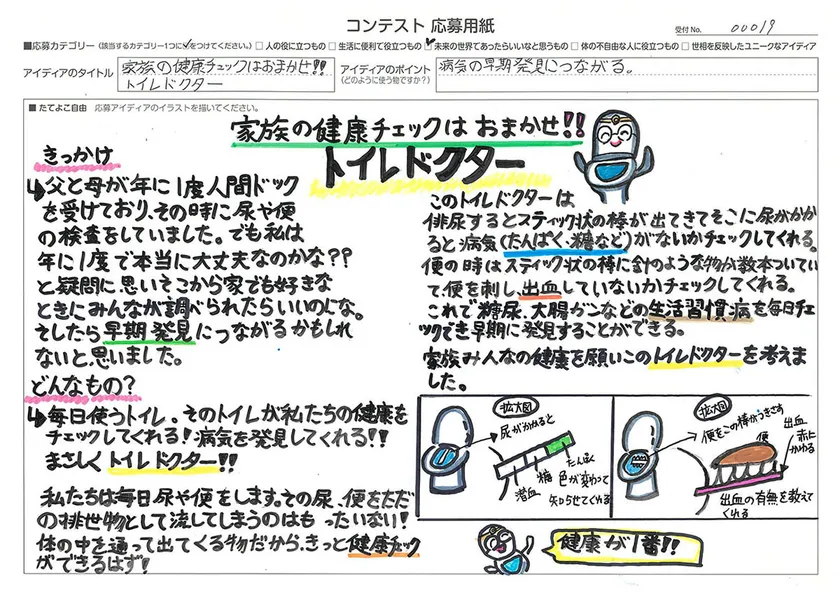 コンテスト 応募用紙
受付No. 00019
■応募カテゴリー（該当するカテゴリー1つに✓をつけてください。）□ 人の役に立つもの □ 生活に便利で役立つもの ☑ 未来の世界であったらいいなと思うもの □ 体の不自由な人に役立つもの □ 世相を反映したユニークなアイディア
アイディアのタイトル
家族の健康チェックはおまかせ!!
トイレドクター
アイディアのポイント
（どのように使う物ですか?）
病気の早期発見につながる。
■ たてよこ自由 応募アイディアのイラストを描いてください。
家族の健康チェックは おまかせ!!
トイレドクター
きっかけ
↳父と母が年に1度人間ドック
を受けており、その時に尿や便
の検査をしていました。でも私は
年に1度で本当に大丈夫なのかな??
と疑問に思いそこから家でも好きな
ときにみんなが調べられたらいいのにな。
そしたら早期発見につながるかもしれ
ないと思いました。
どんなもの?
↳毎日使うトイレ。そのトイレが私たちの健康を
チェックしてくれる!病気を発見してくれる!!
まさしくトイレドクター!!
私たちは毎日尿や便をします。その尿、便をただ
の排世物として流してしまうのはもったいない!
体の中を通って出てくる物だから、きっと健康チェック
ができるはず!
このトイレドクターは
俳尿するとスティック状の棒が出てきてそこに尿がかか
ると病気(たんぱく、糖など)がないかチェックしてくれる。
便の時はスティック状の棒に針のような物が数本ついてい
て、便を刺し、出血していないかチェックしてくれる。
これで糖尿、大腸ガンなどの生活習慣病を毎日チェ
ックでき早期に発見することができる。
家族みんなの健康を願いこのトイレドクターを考えま
した。
拡大図
尿がかかると
たんぱく
糖
潜血
色が変わって
知らせてくれる
拡大図
便をこの棒がうきさす
便
出血
赤にかわる
出血の有無を教えて
くれる
健康が1番!!